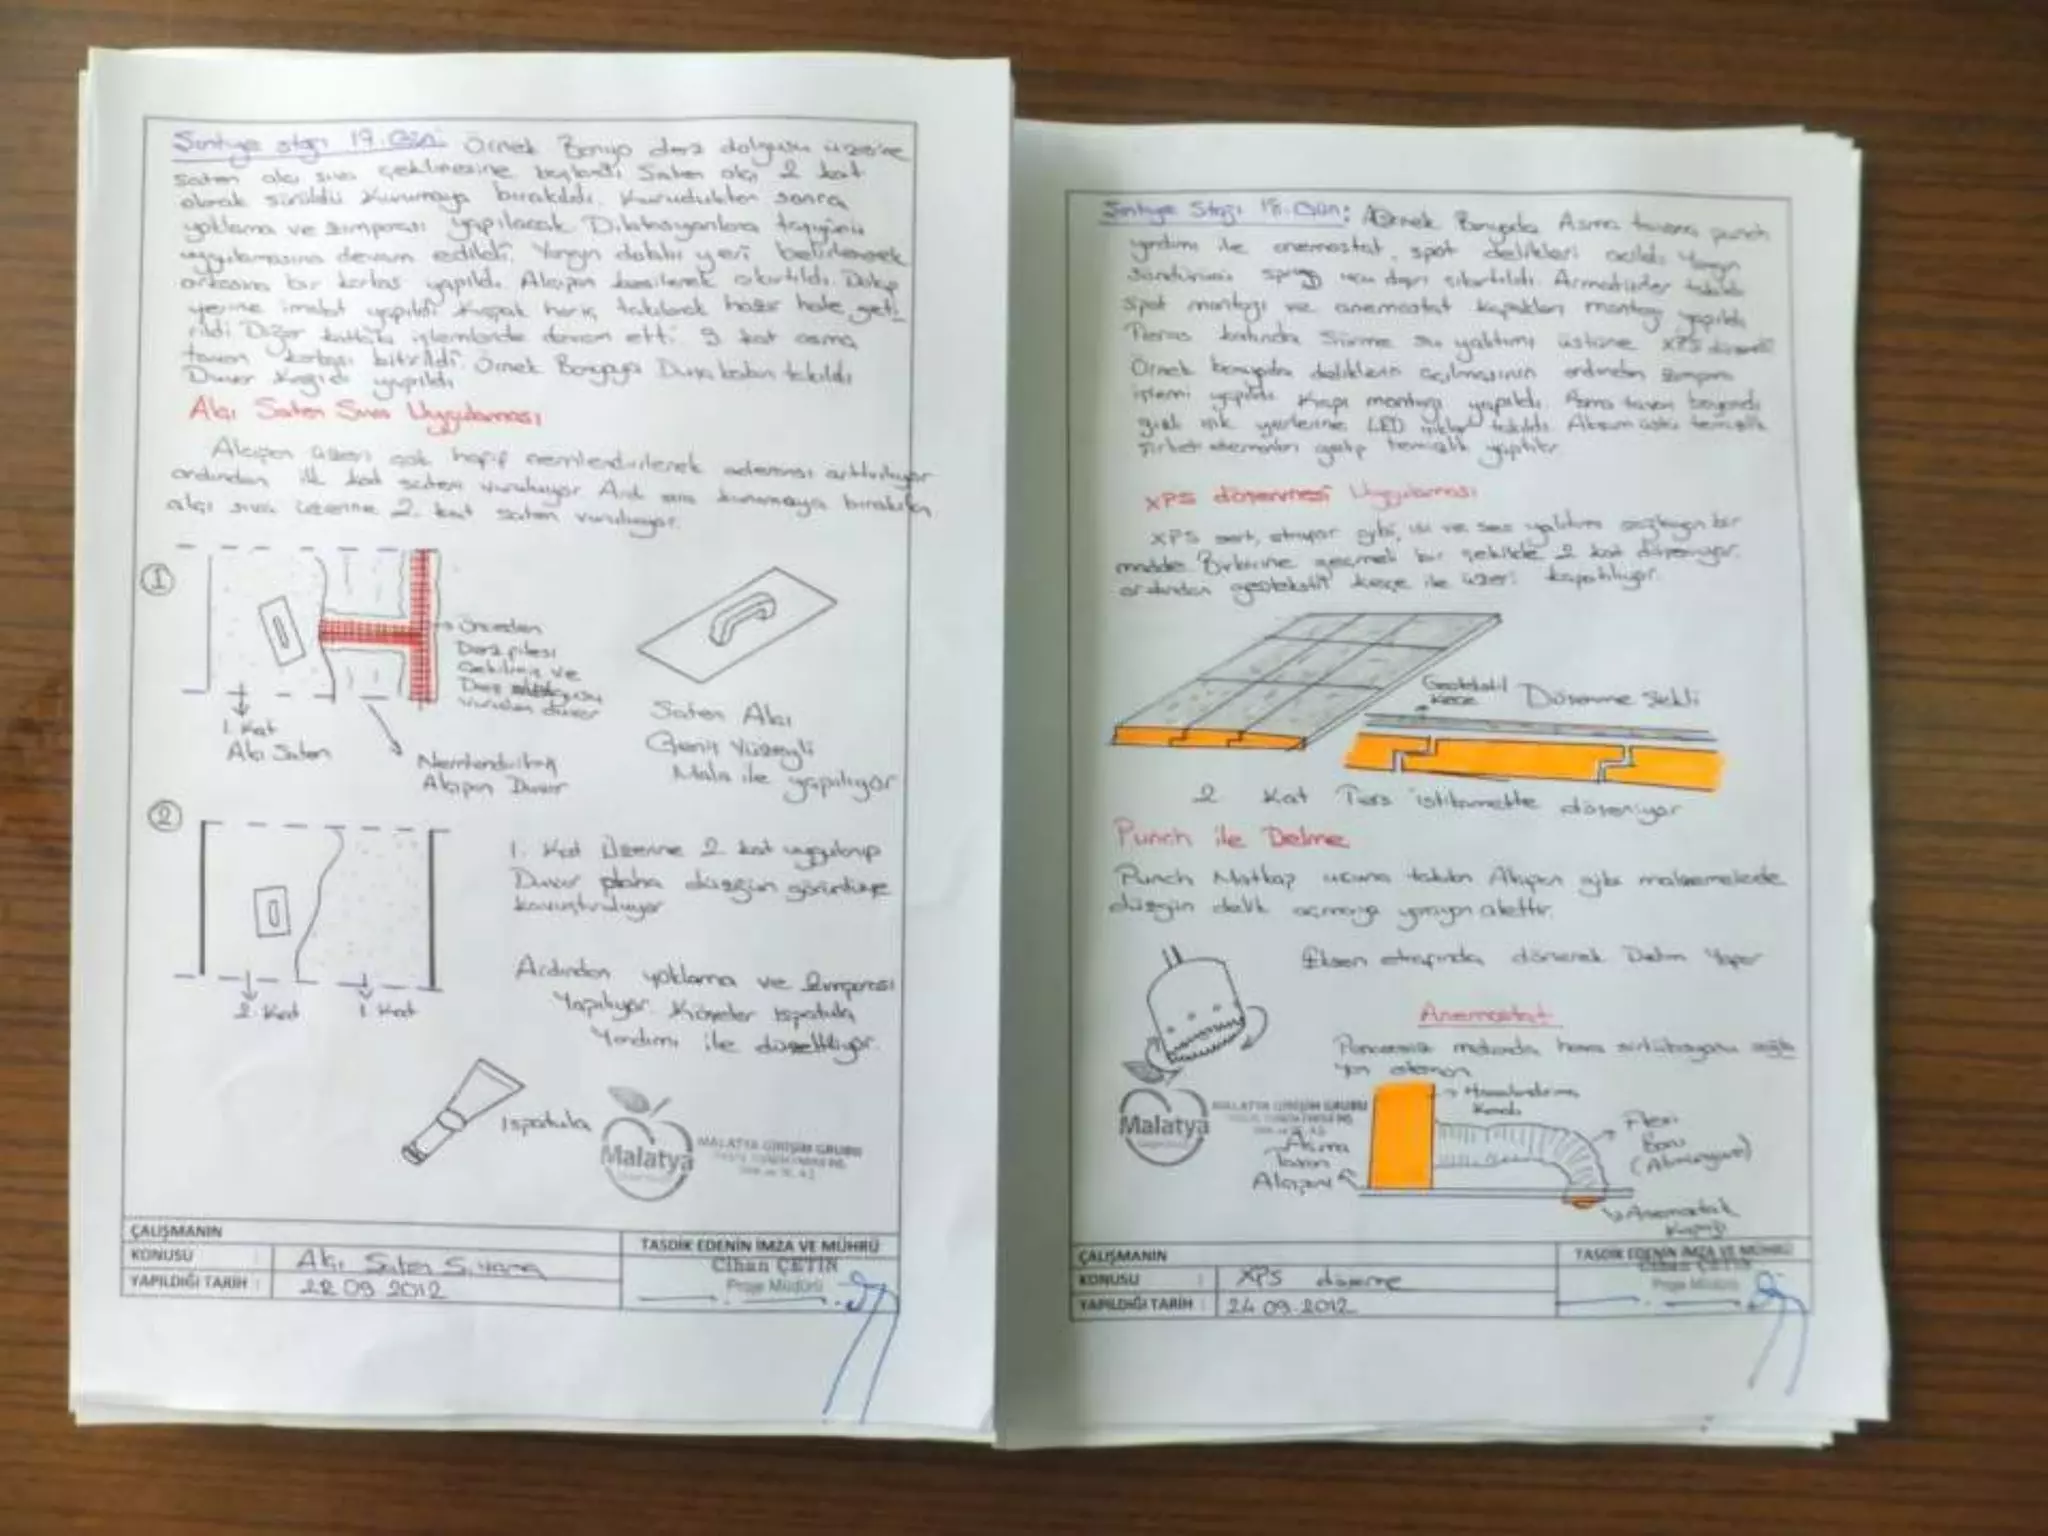 Şantiye stajı 17. Gün: Örnek Banyo derz dolgusu üzerine
saten alçı sıva çekilmesine başlandı Saten alçı 2 kat
olarak sürüldü kurumaya bırakıldı. Kuruduktan sonra
yoklama ve zımparası yapılacak Dilatasyonlara
uygulamasına devam edildi. Yangın dolabı yeri belirlenerek
arkasına bir karkas yapıldı. Alçıpan kesilerek oturtuldu. Dolap
yerine imalat yapıldı Kapak hariç takılarak hazır hale geti
rildi Diğer işlemlerde devam etti. 9 kat asma
tavan karkası bitirildi. Örnek Banyoya Duşakabin takıldı
Duvar Kağıdı yapıldı
Alçı Saten Sıva Uygulaması
Alçıpan üzeri çok hafif nemlendirilerek aderansı arttırılıyor
ardından ilk kat saten vuruluyor Ard sıra kurumaya bırakılan
alçı sıva üzerine 2. kat saten vuruluyor.
1
Önceden
Derz filesi
Çekilmiş ve
Derz
vurulan duvar
1. Kat
Alçı Saten
Nemlendirilmiş
Alçıpan Duvar
Saten Alçı
Geniş Yüzeyli
Mala ile yapılıyor
2
1. Kat Üzerine 2. kat uygulanıp
Duvar daha düzgün görüntüye
kavuşturuluyor
2. Kat
1. Kat
Ardından yoklama ve zımparası
Yapılıyor. Köşeler ıspatula
Yardımı ile düzeltiliyor.
Ispatula
Malatya
MALATYA GİRİŞİM GRUBU
ÇALIŞMANIN
KONUSU : Alçı Saten Sıvama
YAPILDIĞI TARİH : 22 09 2012
TASDİK EDENİN İMZA VE MÜHRÜ
Cihan ÇETİN
Proje Müdürü
Şantiye Stajı 18. Gün: Örnek Banyoda Asma tavana punch
yardımı ile anemostat, spot delikleri açıldı Yangın
söndürücü ucu dışarı çıkartıldı. Armatürler takıldı
spot montajı ve anemostat kapakları montajı yapıldı
Teras katında Sürme su yalıtımı üstüne XPS
Örnek banyoda deliklerin açılmasının ardından zımpara
işlemi yapıldı. Kapı montajı yapıldı. Asma tavan
gizli ışık yerlerine LED ışıklar takıldı. Akşam üstü temizlik
şirket elemanları gelip temizlik yaptılar
XPS döşenmesi Uygulaması
XPS sert, strafor gibi, ısı ve ses yalıtım sağlayan bir
madde. Birbirine geçmeli bir şekilde 2 kat döşeniyor.
ardından geotekstil keçe ile üzeri kapatılıyor.
Geotekstil
keçe
Döşenme Şekli
2 Kat Ters istikamette döşeniyor
Punch ile Delme
Punch Matkap ucuna takılan Alçıpan gibi malzemelerde
düzgün delik açmaya yarayan alettir.
Eksen etrafında dönerek Delim Yapar
Anemostat
mekanda hava sirkülasyonu sağla
yan eleman
Havalandırma
Kanalı
Flexi
Boru
(Alüminyum)
Asma
tavan
Alçıpanı
Anemostat
Kapağı
Malatya
MALATYA GİRİŞİM GRUBU
ÇALIŞMANIN
KONUSU : XPS döşeme
YAPILDIĞI TARİH : 24 09 2012
TASDİK EDENİN İMZA VE MÜHRÜ
Cihan ÇETİN
Proje Müdürü